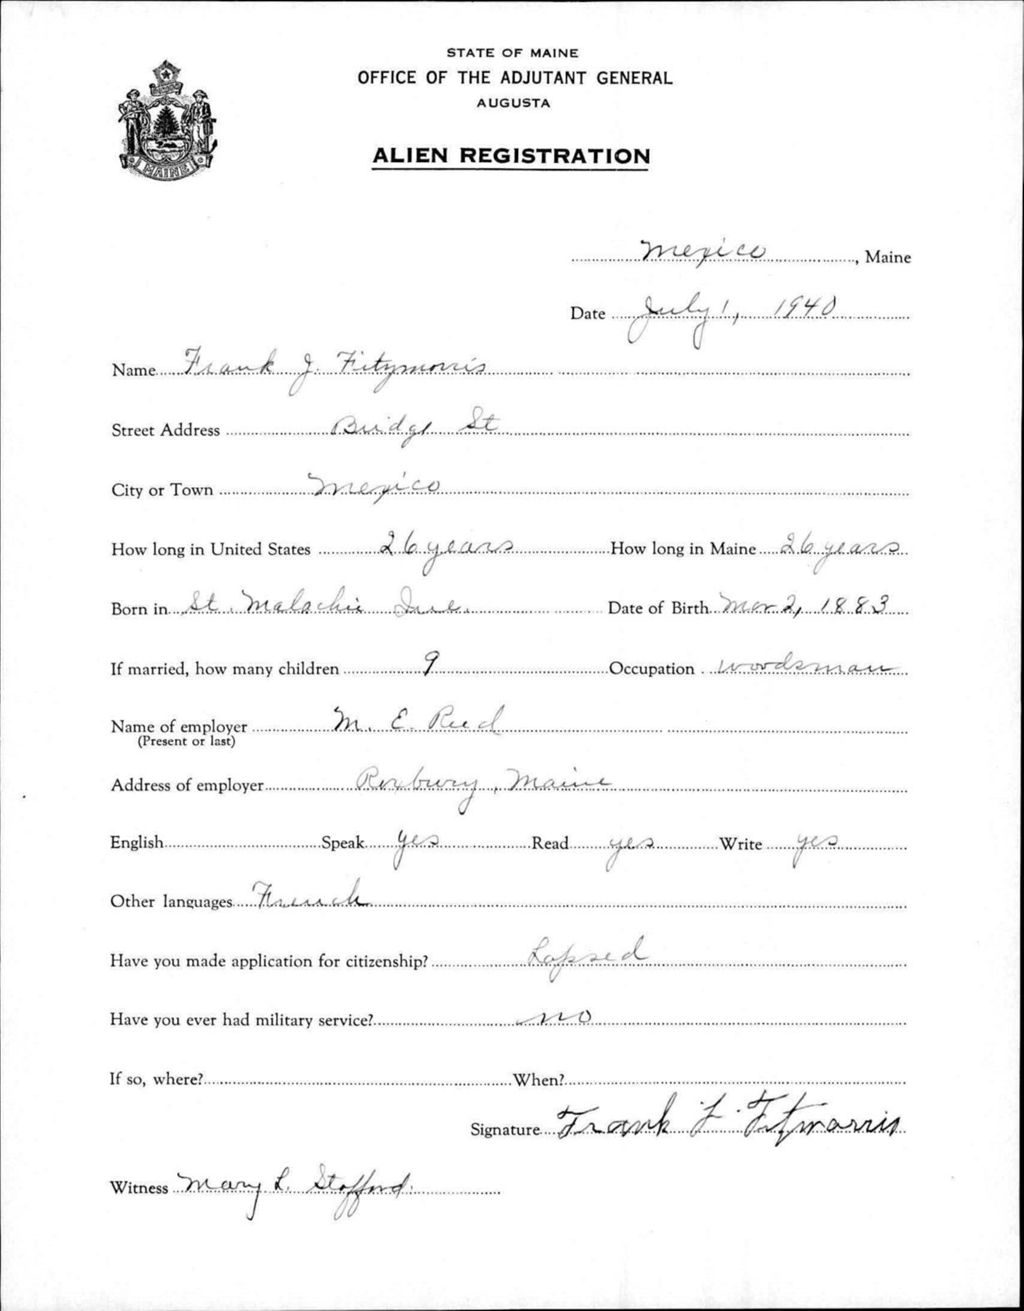 STATE OF MAINE
OFFICE OF THE ADJUTANT GENERAL
AUGUSTA
ALIEN REGISTRATION
MAINE
Mexico, Maine
Date July 1, 1940
Name Frank J. Fitzmorris
Street Address Bridge St
City or Town Mexico
How long in United States 26 years How long in Maine 26 years
Born in St. Malachie Que. Date of Birth Mar 2, 1883
If married, how many children 9 Occupation woodsman
Name of employer M. E. Reed
(Present or last)
Address of employer Roxbury, Maine
English Speak yes Read yes Write yes
Other languages French
Have you made application for citizenship? Lapsed
Have you ever had military service? no
If so, where? When?
Signature Frank J. Fitmorris
Witness Mary L. Stafford